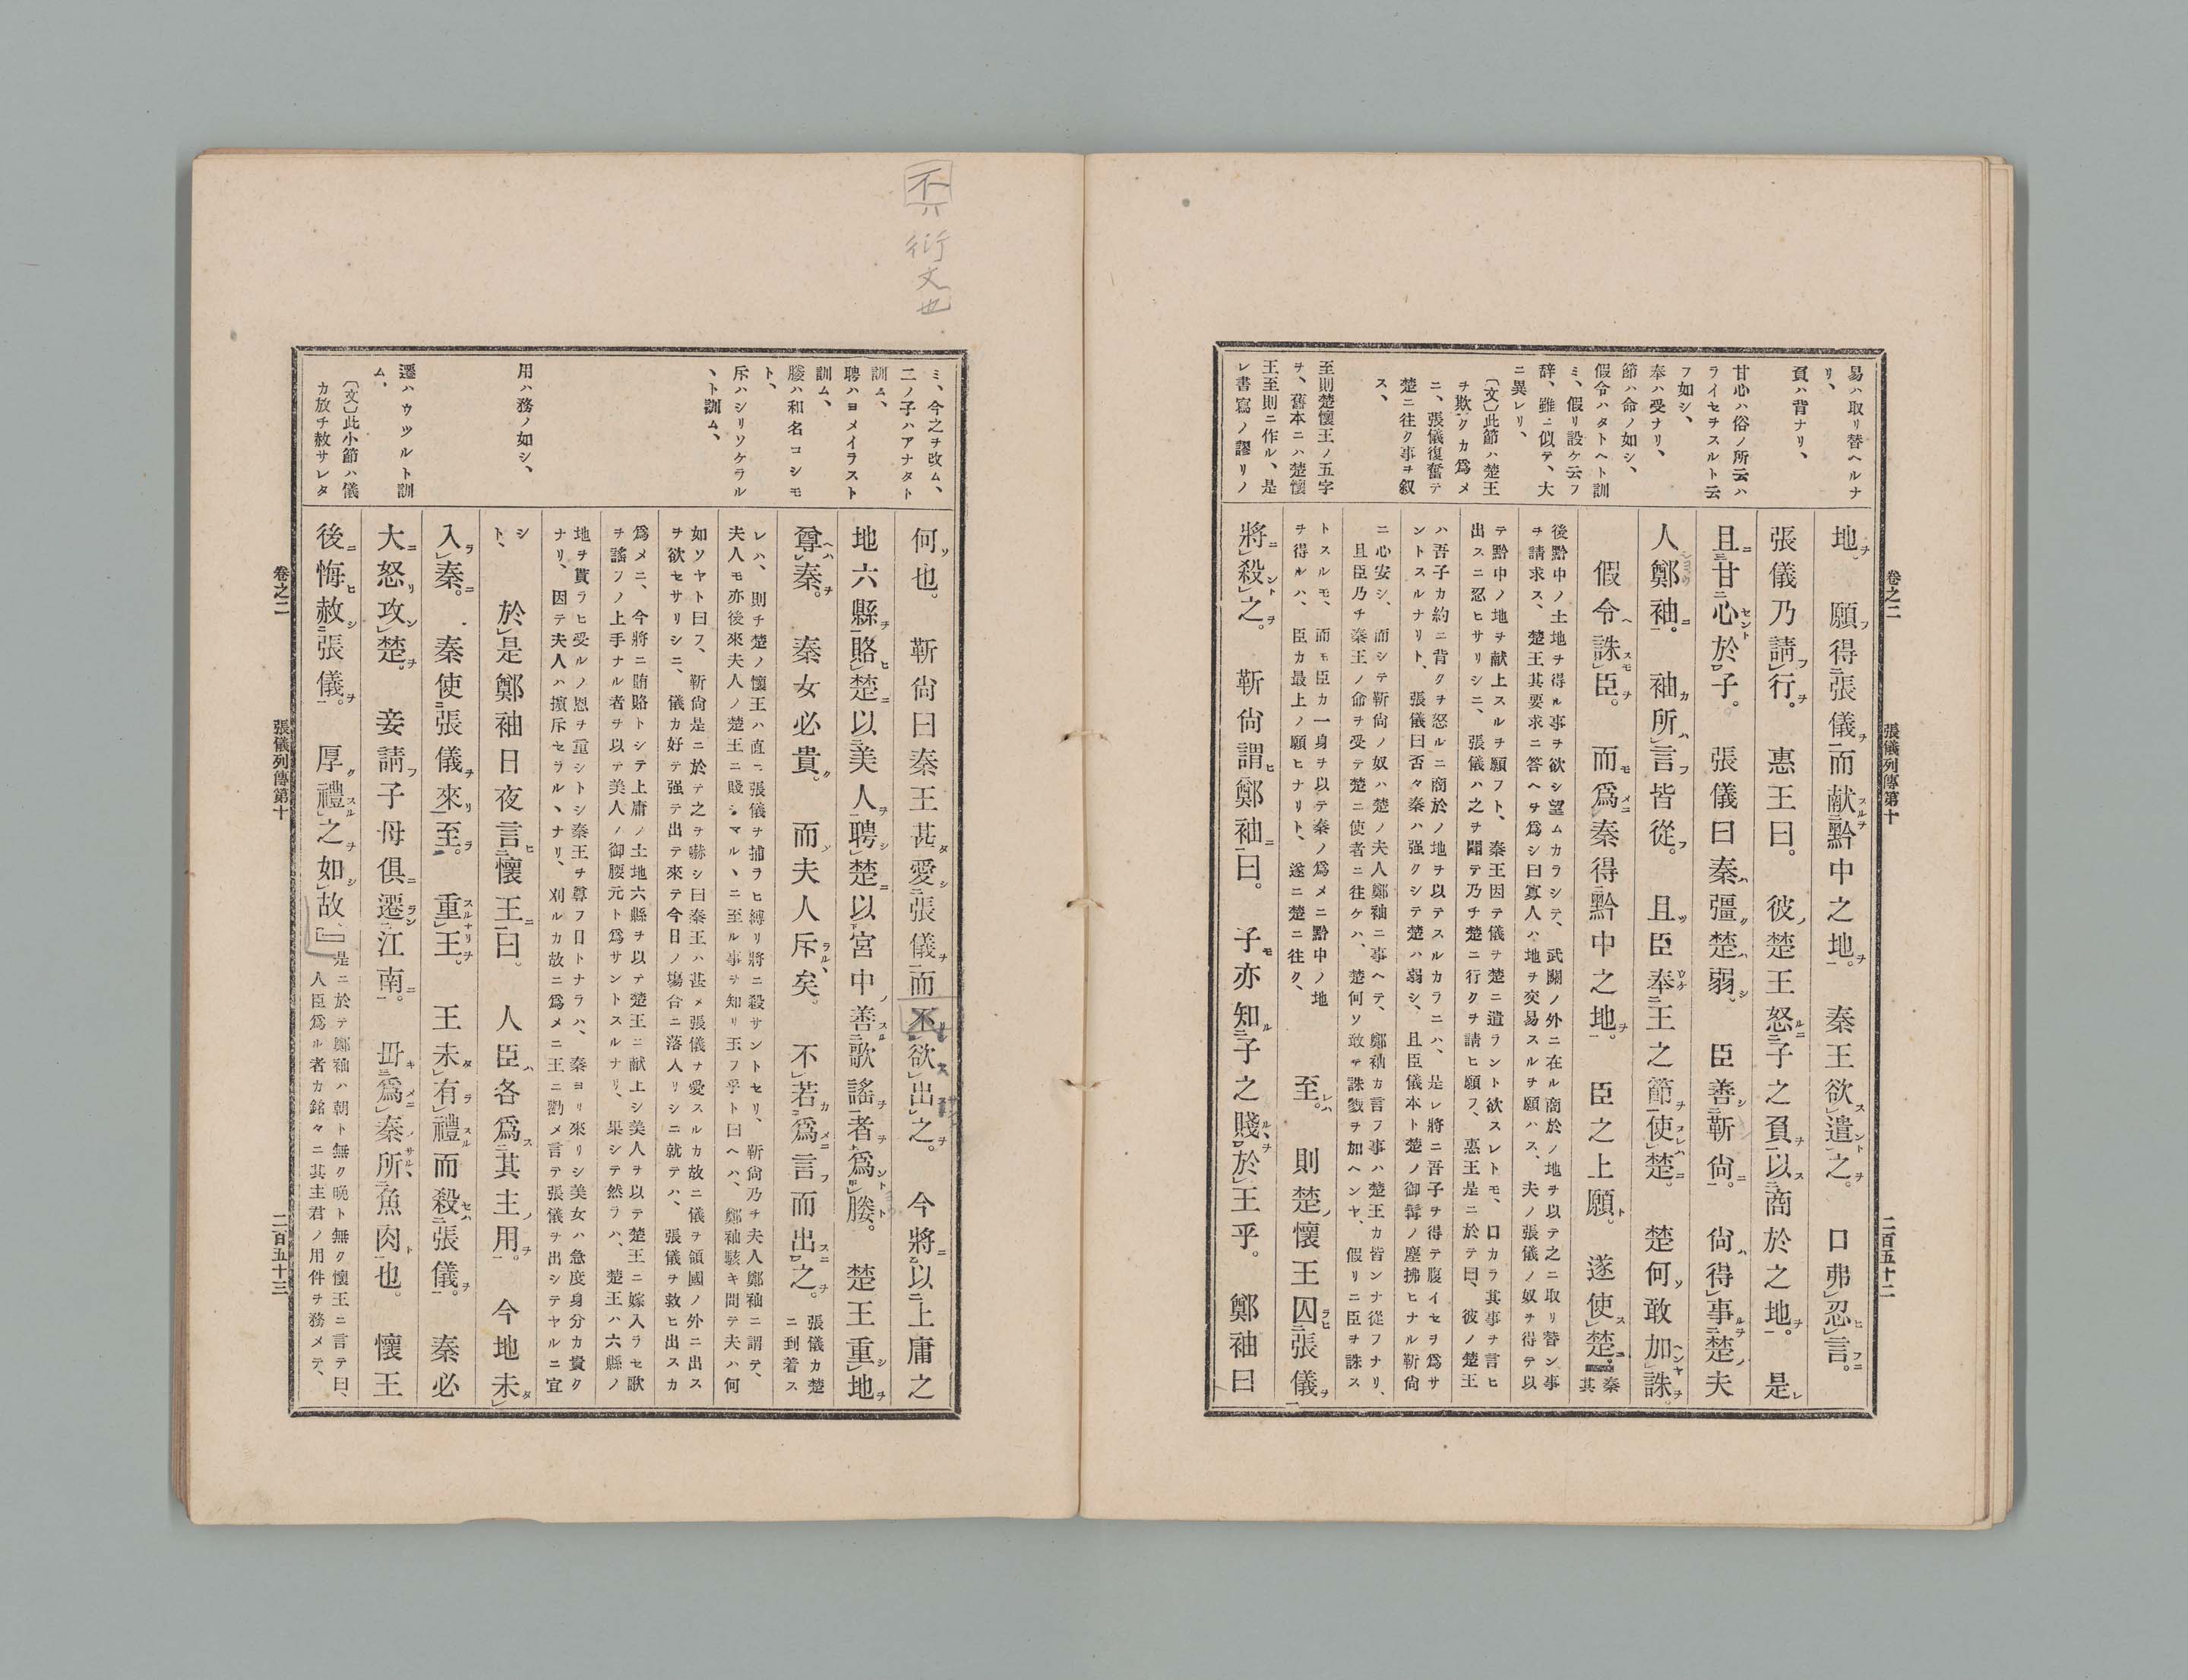 卷之二　張儀列傳第十　二百五十二
易ハ取リ替ヘルナ
リ、
負ハ背ナリ、
甘心ハ俗ノ所云ハ
ライセヲスルト云
フ如シ、
奉ハ受ナリ、
節ハ命ノ如シ、
假令ハタトヘト訓
ミ、假リ設ケ云フ
辞、雖ニ似テ、大
ニ異レリ、
〔文〕此節ハ楚王
ヲ欺クカ爲メ
ニ、張儀復奮テ
楚ニ往ク事ヲ叙
ス、
至則楚懷王ノ五字
ヲ、舊本ニハ楚懷
王至則ニ作ル、是
レ書寫ノ謬リノ
地。願得張儀而献黔中之地。秦王欲遣之。口弗忍言。
張儀乃請行。惠王曰。彼楚王怒子之負以商於之地。是
且甘心於子。張儀曰秦彊楚弱。臣善靳尙。尙得事楚夫
人鄭袖。袖所言皆從。且臣奉王之節使楚。楚何敢加誅。
假令誅臣。而爲秦得黔中之地。臣之上願。遂使楚。秦其
後黔中ノ土地ヲ得ル事ヲ欲シ望ムカラシテ、武關ノ外ニ在ル商於ノ地ヲ以テ之ニ取リ替ン事
ヲ請求ス、楚王其要求ニ答ヘヲ爲シ曰寡人ハ地ヲ交易スルヲ願ハス、夫ノ張儀ノ奴ヲ得テ以
テ黔中ノ地ヲ献上スルヲ願フト、秦王因テ儀ヲ楚ニ遣ラント欲スレトモ、口カラ其事ヲ言ヒ
出スニ忍ヒサリシニ、張儀ハ之ヲ聞テ乃チ楚ニ行クヲ請ヒ願フ、惠王是ニ於テ曰、彼ノ楚王
ハ吾子カ約ニ背クヲ怒ルニ商於ノ地ヲ以テスルカラニハ、是レ將ニ吾子ヲ得テ腹イセヲ爲サ
ントスルナリト、張儀曰否々秦ハ强クシテ楚ハ弱シ、且臣儀本ト楚ノ御髯ノ塵拂ヒナル靳尙
ニ心安シ、而シテ靳尙ノ奴ハ楚ノ夫人鄭袖ニ事ヘテ、鄭袖カ言フ事ハ楚王カ皆ンナ從フナリ、
且臣乃チ秦王ノ命ヲ受テ楚ニ使者ニ往ケハ、楚何ソ敢テ誅戮ヲ加ヘンヤ、假リニ臣ヲ誅ス
トスルモ、而モ臣カ一身ヲ以テ秦ノ爲メニ黔中ノ地
ヲ得ルハ、臣カ最上ノ願ヒナリト、遂ニ楚ニ往ク、
至。則楚懷王囚張儀
將殺之。靳尙謂鄭袖曰。子亦知子之賤於王乎。鄭袖曰
不ハ衍文也
ミ、今之ヲ改ム、
二ノ子ハアナタト
訓ム、
聘ハヨメイラスト
訓ム、
媵ハ和名コシモ
ト、
斥ハシリソケラル
ヽト訓ム、
用ハ務ノ如シ、
遷ハウツルト訓
ム、
〔文〕此小節ハ儀
カ放チ赦サレタ
何也。靳尙曰秦王甚愛張儀而不欲出之。今將以上庸之
地六縣賂楚以美人聘楚以宮中善歌謠者爲媵。楚王重地
尊秦。秦女必貴。而夫人斥矣。不若爲言而出之。張儀カ楚ニ到着ス
レハ、則チ楚ノ懷王ハ直ニ張儀ヲ捕ラヒ縛リ將ニ殺サントセリ、靳尙乃チ夫人鄭袖ニ謂テ、
夫人モ亦後來夫人ノ楚王ニ賤シマルヽニ至ル事ヲ知リ玉フ乎ト曰ヘハ、鄭袖駭キ問テ夫ハ何
如ソヤト曰フ、靳尙是ニ於テ之ヲ嚇シ曰秦王ハ甚メ張儀ヲ愛スルカ故ニ儀ヲ領國ノ外ニ出ス
ヲ欲セサリシニ、儀カ好テ强テ出テ來テ今日ノ塲合ニ落入リシニ就テハ、張儀ヲ救ヒ出スカ
爲メニ、今將ニ賄賂トシテ上庸ノ土地六縣ヲ以テ楚王ニ献上シ美人ヲ以テ楚王ニ嫁入ラセ歌
ヲ謠フノ上手ナル者ヲ以テ美人ノ御腰元ト爲サントスルナリ、果シテ然ラハ、楚王ハ六縣ノ
地ヲ貰ラヒ受ルノ恩ヲ重シトシ秦王ヲ尊フ日トナラハ、秦ヨリ來リシ美女ハ急度身分カ貴ク
ナリ、因テ夫人ハ擯斥セラルヽナリ、刈ルカ故ニ爲メニ王ニ勸メ言テ張儀ヲ出シテヤルニ宜
シト、於是鄭袖日夜言懷王曰。人臣各爲其主用。今地未
入秦。秦使張儀來至。重王。王未有禮而殺張儀。秦必
大怒攻楚。妾請子母俱遷江南。毋爲秦所魚肉也。懷王
後悔赦張儀。厚禮之如故、
是ニ於テ鄭袖ハ朝ト無ク晩ト無ク懷王ニ言テ曰、
人臣爲ル者カ銘々ニ其主君ノ用件ヲ務メテ、
卷之二　張儀列傳第十　二百五十三